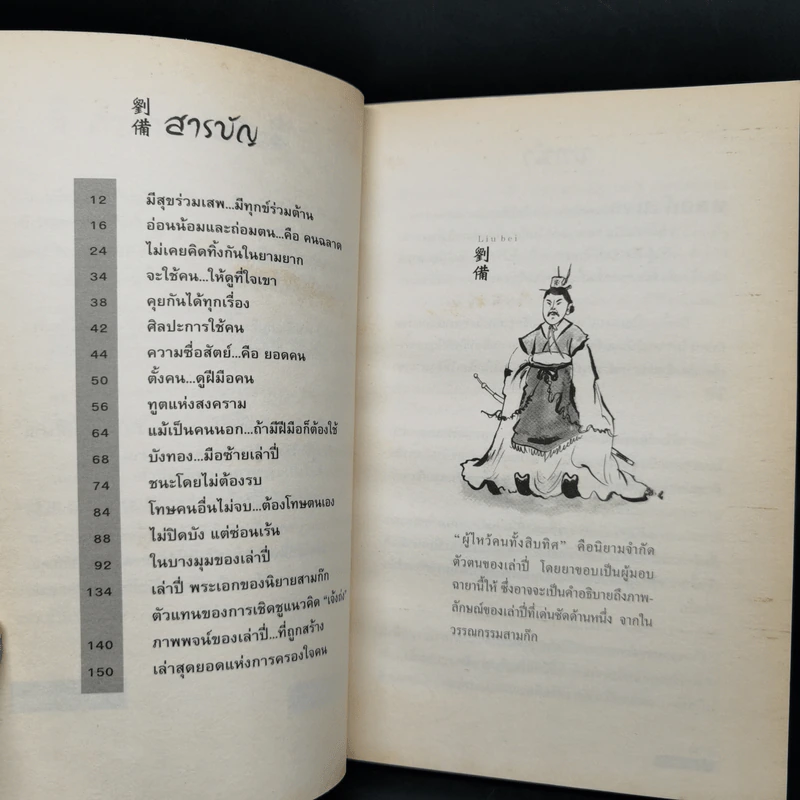 劉備 สารบัญ
12 มีสุขร่วมเสพ...มีทุกข์ร่วมต้าน
16 อ่อนน้อมและถ่อมตน...คือ คนฉลาด
24 ไม่เคยคิดทิ้งกันในยามยาก
34 จะใช้คน...ให้ดูที่ใจเขา
38 คุยกันได้ทุกเรื่อง
42 ศิลปะการใช้คน
44 ความซื่อสัตย์...คือ ยอดคน
50 ตั้งคน...ดูฝีมือคน
56 ทูตแห่งสงคราม
64 แม้เป็นคนนอก...ถ้ามีฝีมือก็ต้องใช้
68 บังทอง...มือซ้ายเล่าปี่
74 ชนะโดยไม่ต้องรบ
84 โทษคนอื่นไม่จบ...ต้องโทษตนเอง
88 ไม่ปิดบัง แต่ซ่อนเร้น
92 ในบางมุมของเล่าปี่
134 เล่าปี่ พระเอกของนิยายสามก๊ก
ตัวแทนของการเชิดชูแนวคิด "เจ้งถ่ง"
140 ภาพพจน์ของเล่าปี่...ที่ถูกสร้าง
150 เล่าสุดยอดแห่งการครองใจคน
Liu bei
劉備
"ผู้ไหว้คนทั้งสิบทิศ" คือนิยามจำกัด
ตัวตนของเล่าปี่ โดยยาขอบเป็นผู้มอบ
ฉายานี้ให้ ซึ่งอาจจะเป็นคำอธิบายถึงภาพ-
ลักษณ์ของเล่าปี่ที่เด่นชัดด้านหนึ่ง จากใน
วรรณกรรมสามก๊ก